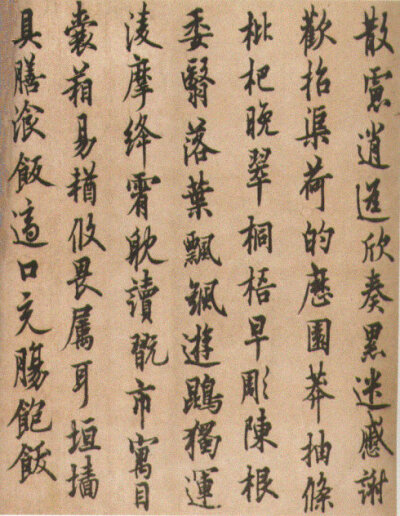 散慮逍遥欣奏累遣慼謝
歡招渠荷的歷園莽抽條
枇杷晚翠桐梧早彫陳根
委翳落葉飄颻遊鵾獨運
淩摩絳霄耽讀翫市寓目
囊箱易輶攸畏屬耳垣墻
具膳湌飯適口充腸飽飫